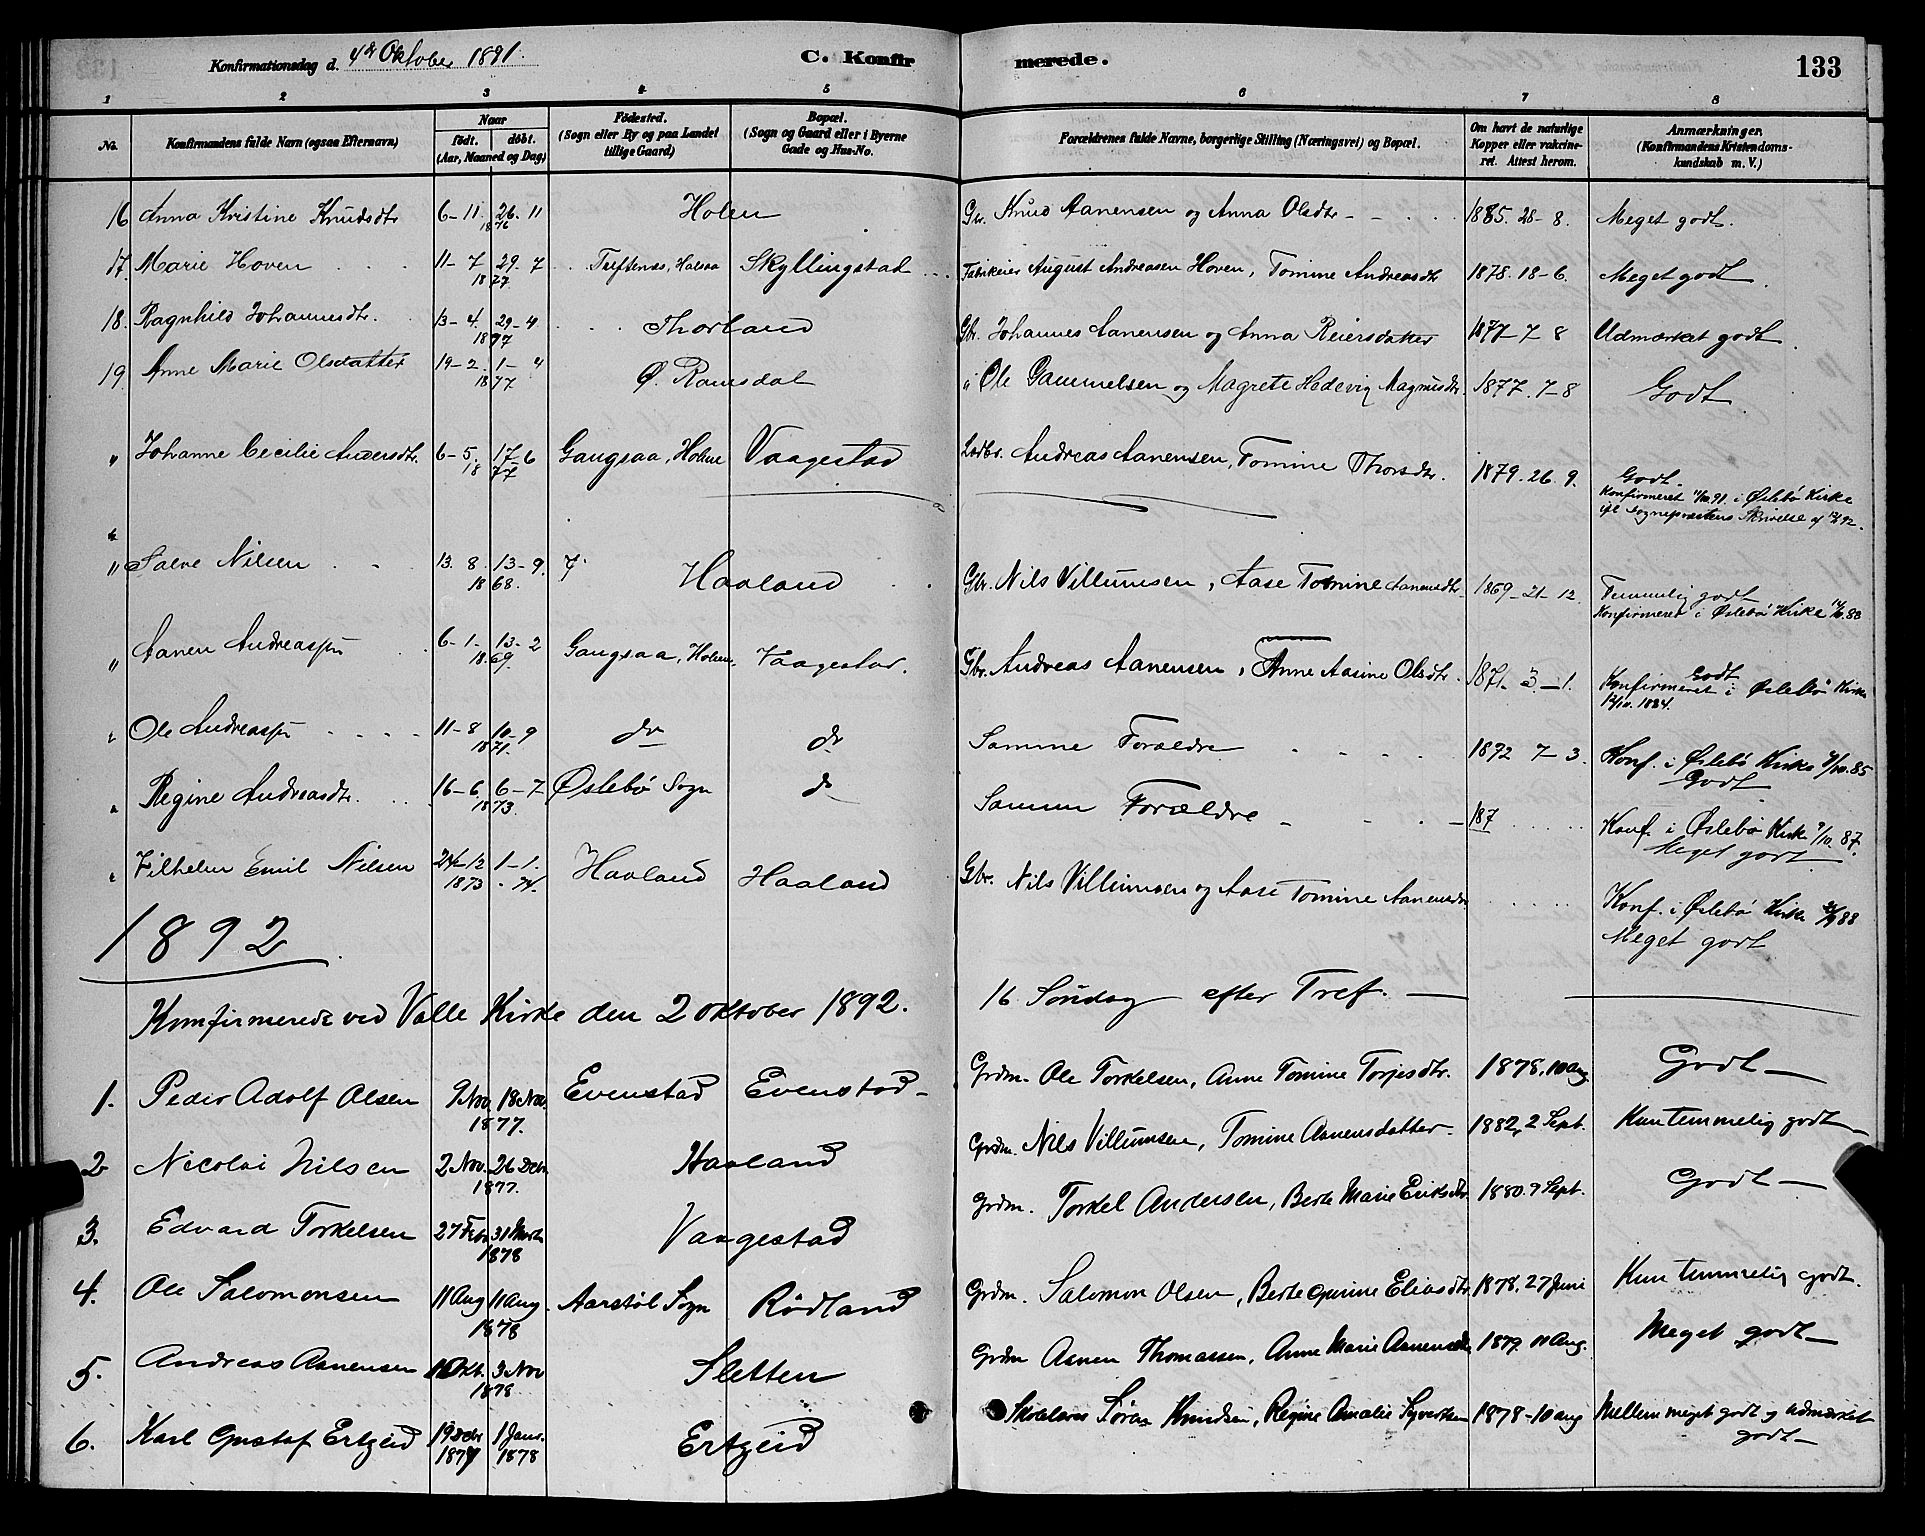 Konfirmationsdag d. 4de Oktober 1891.
C. Konfir merede. 133
1 2 3 4 5 6 7 8
No. Konfirmandens fulde Navn (ogsaa Efternavn) Naar født. døbt. (Aar, Maaned og Dag) Fødested. (Sogn eller By og paa Landet tillige Gaard) Bopæl. (Sogn og Gaard eller i Byerne Gade og Hus-No. Forældrenes fulde Navne, borgerlige Stilling (Næringsvei) og Bopæl. Om havt de naturlige Kopper eller vakcineret. Attest herom. Anmærkninger. (Konfirmandens Kristendomskundskab m. V.)
16 Anna Kristine Knudsdtr 6-11. 26. 11 1876 Holen Gbr. Knud Aanensen og Anna Olsdtr 1885. 28-8. Meget godt.
17. Marie Hoven 11-7 29. 7 1877 Holsaa Skyllingstad August Andreasen Hoven, Tomine Andreasdtr 1878. 18-6. Meget godt.
18. Ragnhild Johannesdtr. 13-4. 29-4 1877 Thorland Gbr. Johannes Aanensen og Anna Reiersdatter 1877-7-8 Udmærket godt.
19. Anne Marie Olsdatter 19-2. 1-4 1877 Ø. Ramsdal " Ole Gammelsen og Magrete Hedevig Magnusdtr. 1877. 7-8 Godt.
" Johanne Cecilie Andersdtr. 6-5. 17-6 1877 Gangsaa, Holme Vaagestad Andreas Aanensen, Tomine Thorsdtr. 1879. 26. 9. Godt.
Konfirmeret i Øslebö Kirke
ifl. Sognepræstens Skrivelse af
" Salve Nilsen 13. 8. 13-9. 1868. Haaland Gbr. Nils Villumsen, Aase Tomine Aanensdtr. 1869-21-12. Temmelig godt
Konfirmeret i Øslebö Kirke
" Aanen Andreassen 6-1. 13-2 1869. Gangsaa, Holme. Vaagestad. Gbr. Andreas Aanensen, Anne Aasine Olsdtr. 1871. 3-1. Godt
Konfirmeret i Øslebö Kirke
1884.
" Ole Andreassen 11-8 10-9 1871. do do Samme Forældre 1872 7-3. Konf. i Øslebö Kirke 4/10. 85
Godt
" Regine Andreasdtr. 16-6. 6-7 1873. Øslebö Sogn do Samme Forældre 187 Konf. i Øslebö Kirke 9/10. 87.
Meget godt
" Vilhelm Emil Nilsen 1-1. 1873 . 74. Haaland Haaland Gbr. Nils Villumsen og Aase Tomine Aanensdtr Konf. i Øslebö Kirke 88
Meget godt
1892.
Konfirmerede ved Valle Kirke den 2 oktober 1892. 16 Søndag efter Tref.
1. Peder Adolf Olsen 9 Nov. 18 Nov. 1877. Evenstad Evenstad Grdm. Ole Torkelsen, Anne Tomine Torjesdtr. 1878, 10 Aug Godt
2 Nicolai Nilsen 2 Nov. 26 Debr 1877. Haaland Grdm. Nils Villumsen, Tomine Aanensdatter 1882, 2 Sept. Kun temmelig godt
3. Edvard Torkelsen 27 Febr 31 Marts 1878 Vaagestad Grdm. Torkel Andersen, Berte Marie Eriksdtr. 1880. 7 Sept. Godt
4. Ole Salomonsen 11 Aug 11 Aug. 1878 Aarstöl Sogn Rödland Grdm. Salomon Olsen, Berte Gurine Eliasdtr. 1878, 27 Juni Kun temmelig godt.
5. Andreas Aanensen Okt. 3 Nov 1878 Sletten Grdm Aanen Thomassen, Anne Marie Aanensdtr 1879. 11 Aug. Meget godt
6. Karl Gustaf Ertzeid 19 Debr 1877 1 Janr. 1878 Ertzeid Skolelærer Søren Knudsen, Regine Amalie Syvertsen 1878-10 aug Mellem meget godt og udmærket
godt